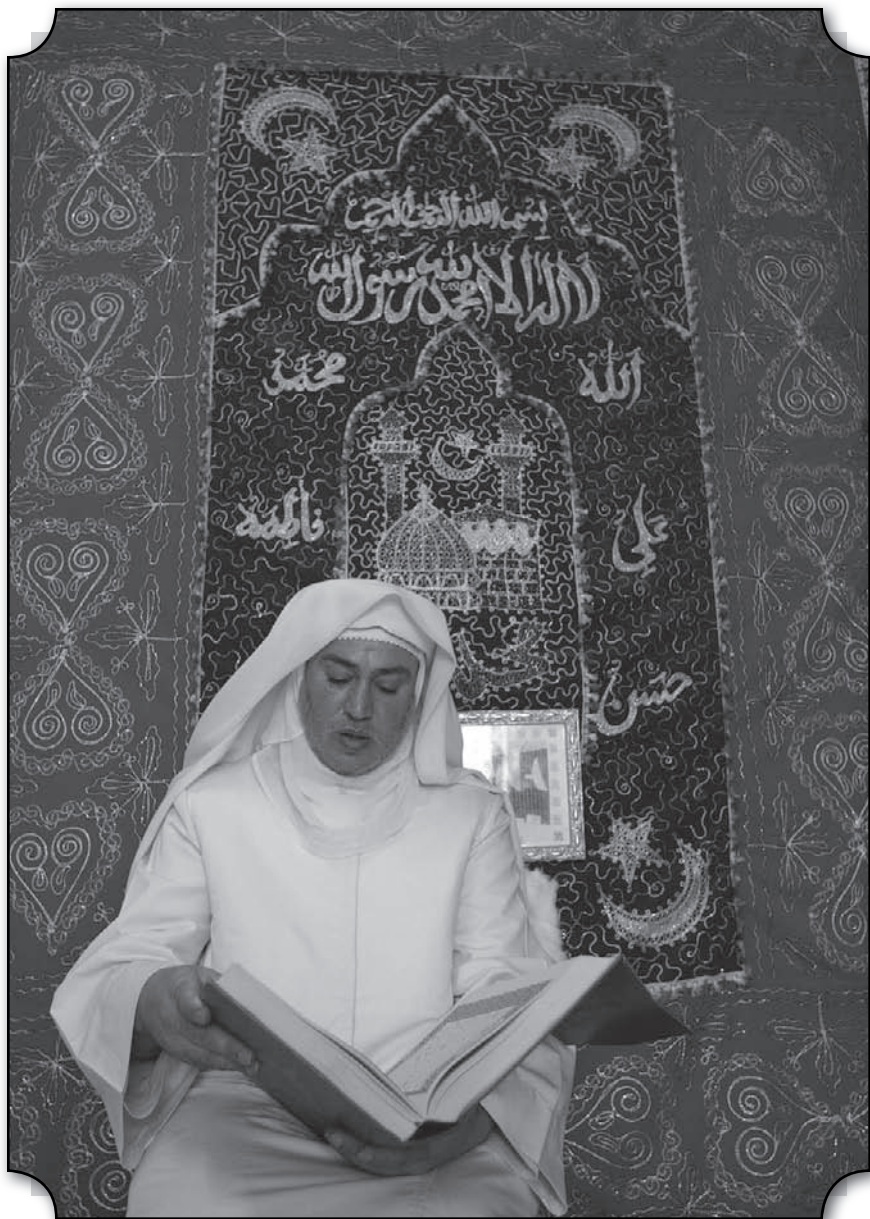 بسم الله الرحمن الرحيم
لا اله الا الله محمد رسول الله
الله
محمد
علي
فاطمه
حسن